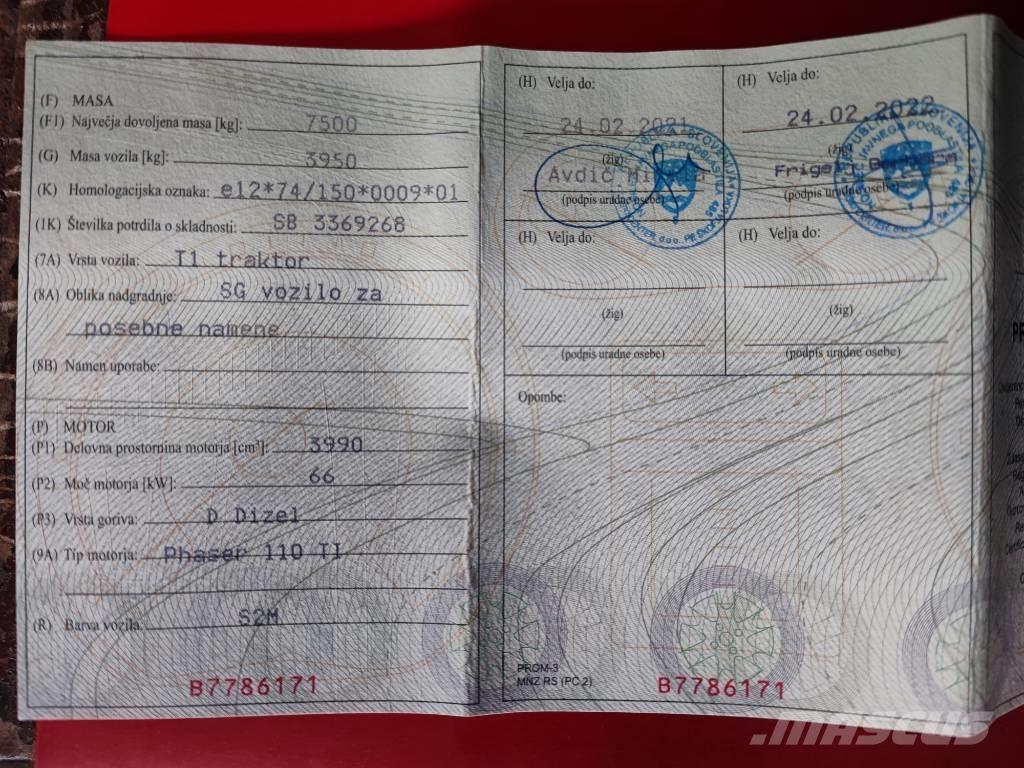 (F) MASA
(F1) Največja dovoljena masa [kg]: 7500
(G) Masa vozila [kg]: 3950
(K) Homologacijska oznaka: e12*74/150*0009*01
(1K) Številka potrdila o skladnosti: SB 3369268
(7A) Vrsta vozila: T1 traktor
(8A) Oblika nadgradnje: SG vozilo za
posebne namene
(8B) Namen uporabe:
(P) MOTOR
(P1) Delovna prostornina motorja [cm³]: 3990
(P2) Moč motorja [kW]: 66
(P3) Vrsta goriva: D Dizel
(9A) Tip motorja: Phaser 110 TI
(R) Barva vozila: S2M
B7786171
(H) Velja do:
24.02.2021
(žig)
Avdić
(podpis uradne osebe)
(H) Velja do:
24.02.2022
(žig)
(podpis uradne osebe)
(H) Velja do:
(žig)
(podpis uradne osebe)
(H) Velja do:
(žig)
(podpis uradne osebe)
Opombe:
PROM-3
MNZ RS (PC 2)
B7786171
MASCUS